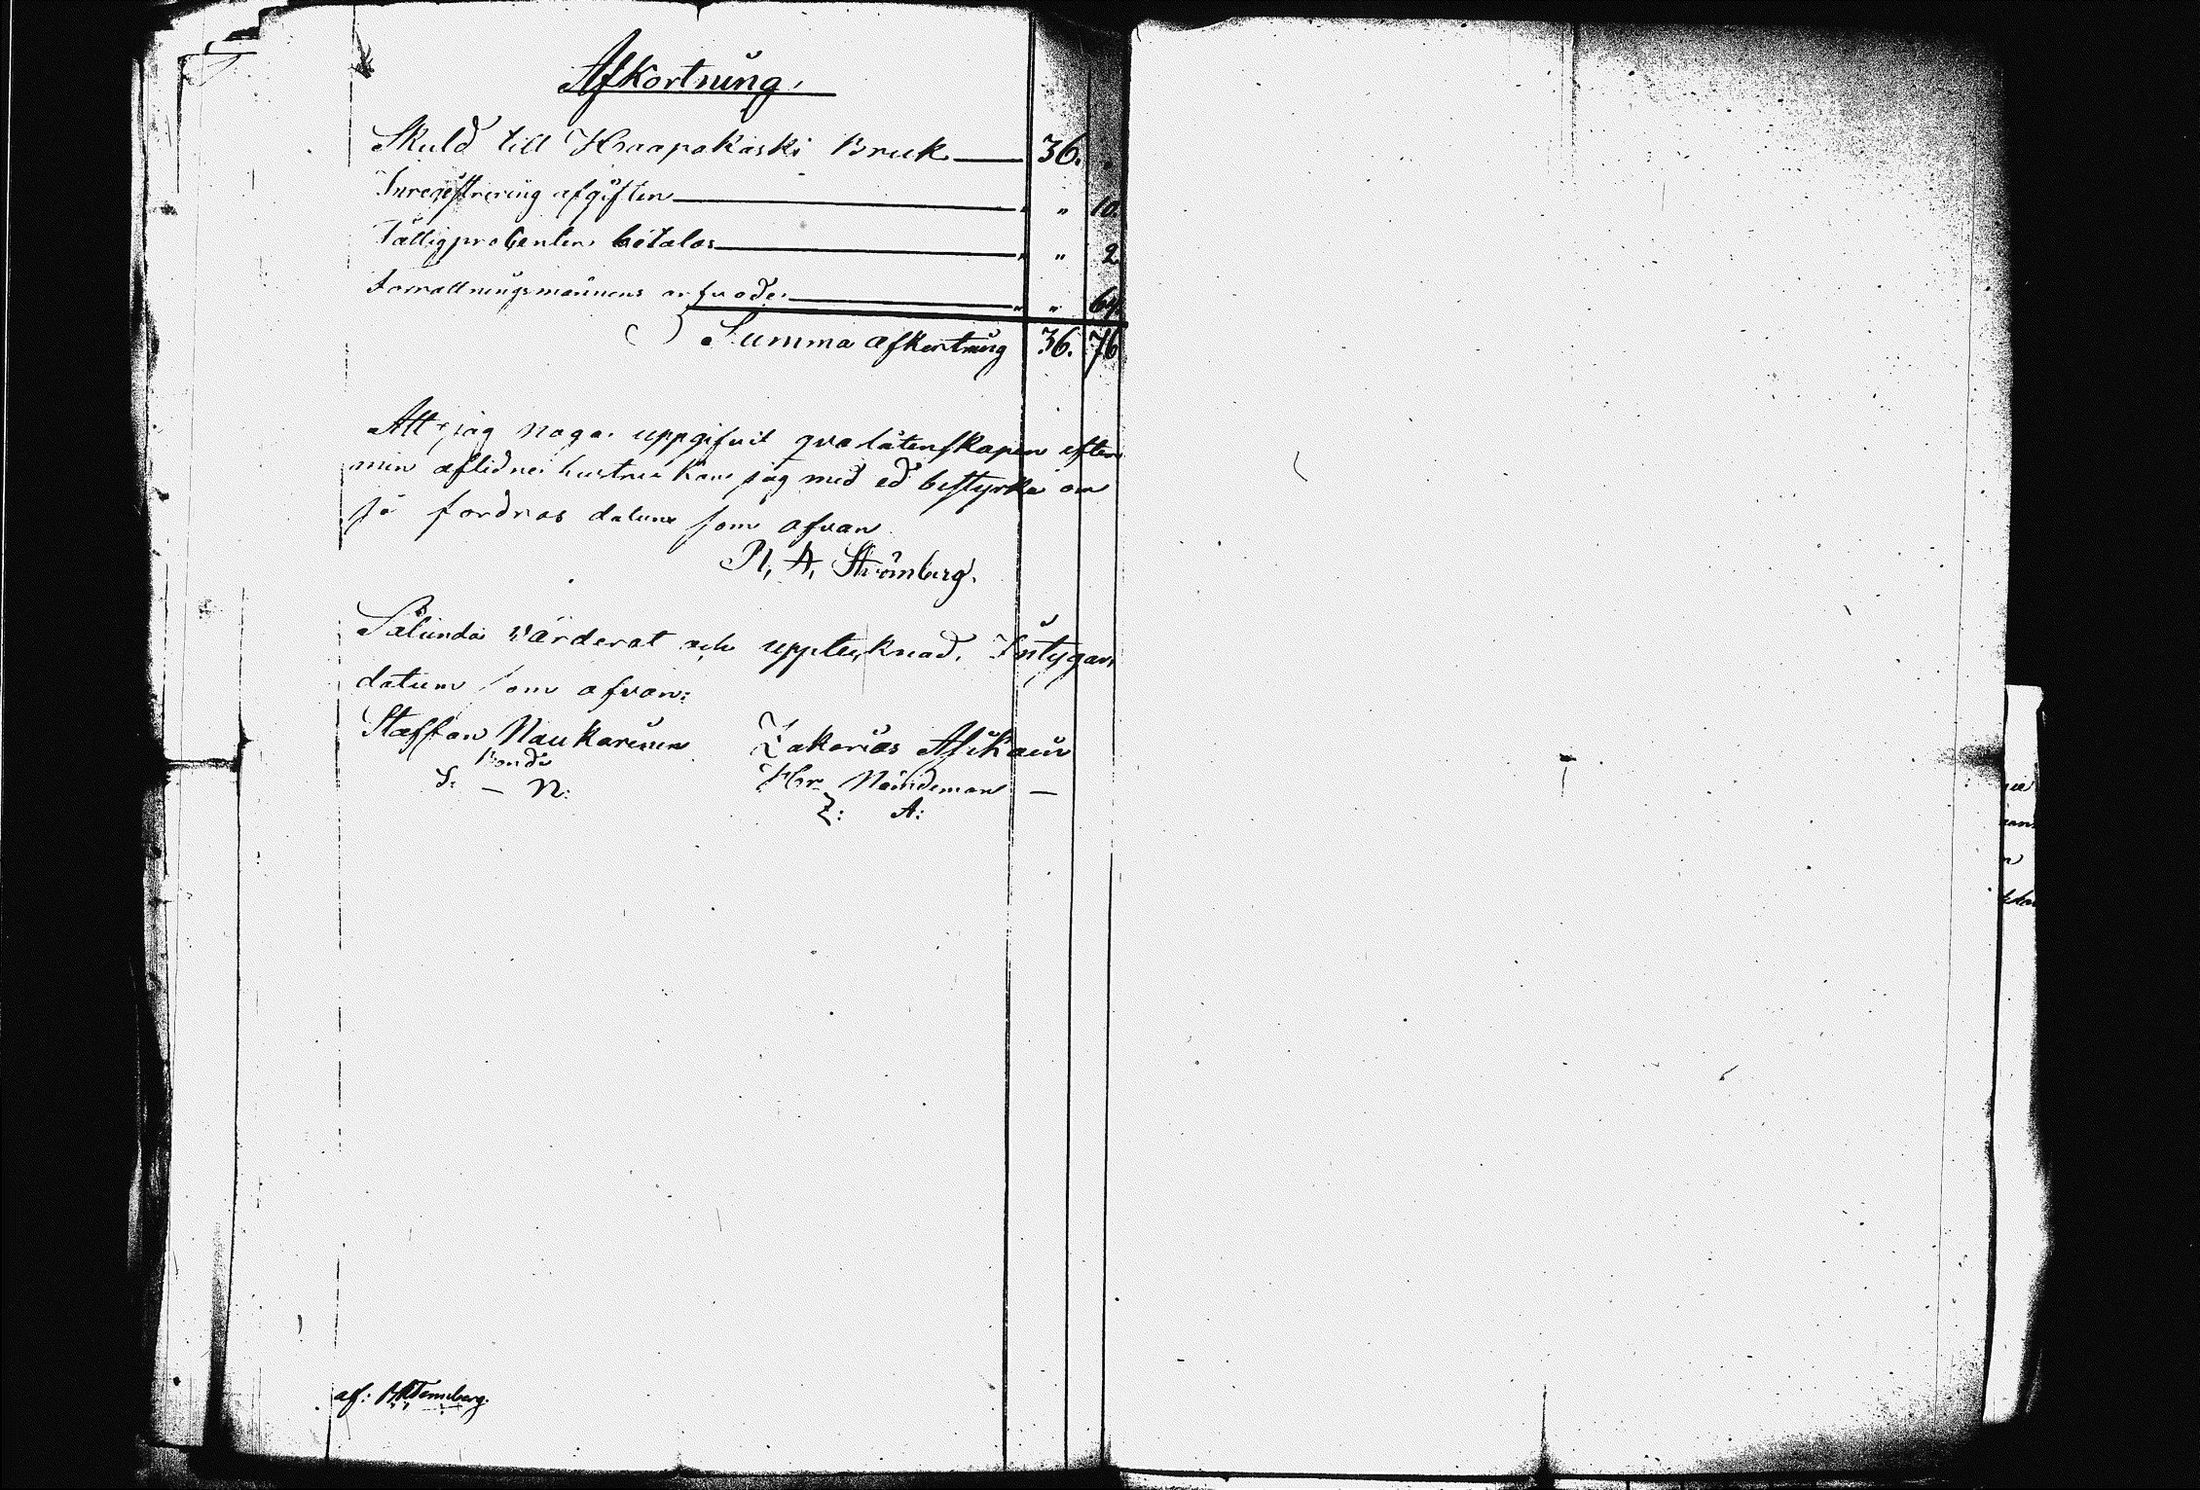 Afkortning.
Skuld till Haapakoski Bruk 36. "
Inregistrering afgiften " 10.
Fattigprocenten betalas " 2
Forrattningsmännens arfvode " 64.
Summa afkortning 36. 76
Att jag noga uppgifvit qvarlåtenskapen efter
min aflidne hustru kan jag med ed bestyrka om
så fordras datum som ofvan
P. A. Strömberg.
Sålunda värderat och upptecknad. Intygar
datum som ofvan:
Staffan Naukarinen Zakarias Asikain
Bonde
S: – N: Hr Nämdeman –
Z: A:
af: